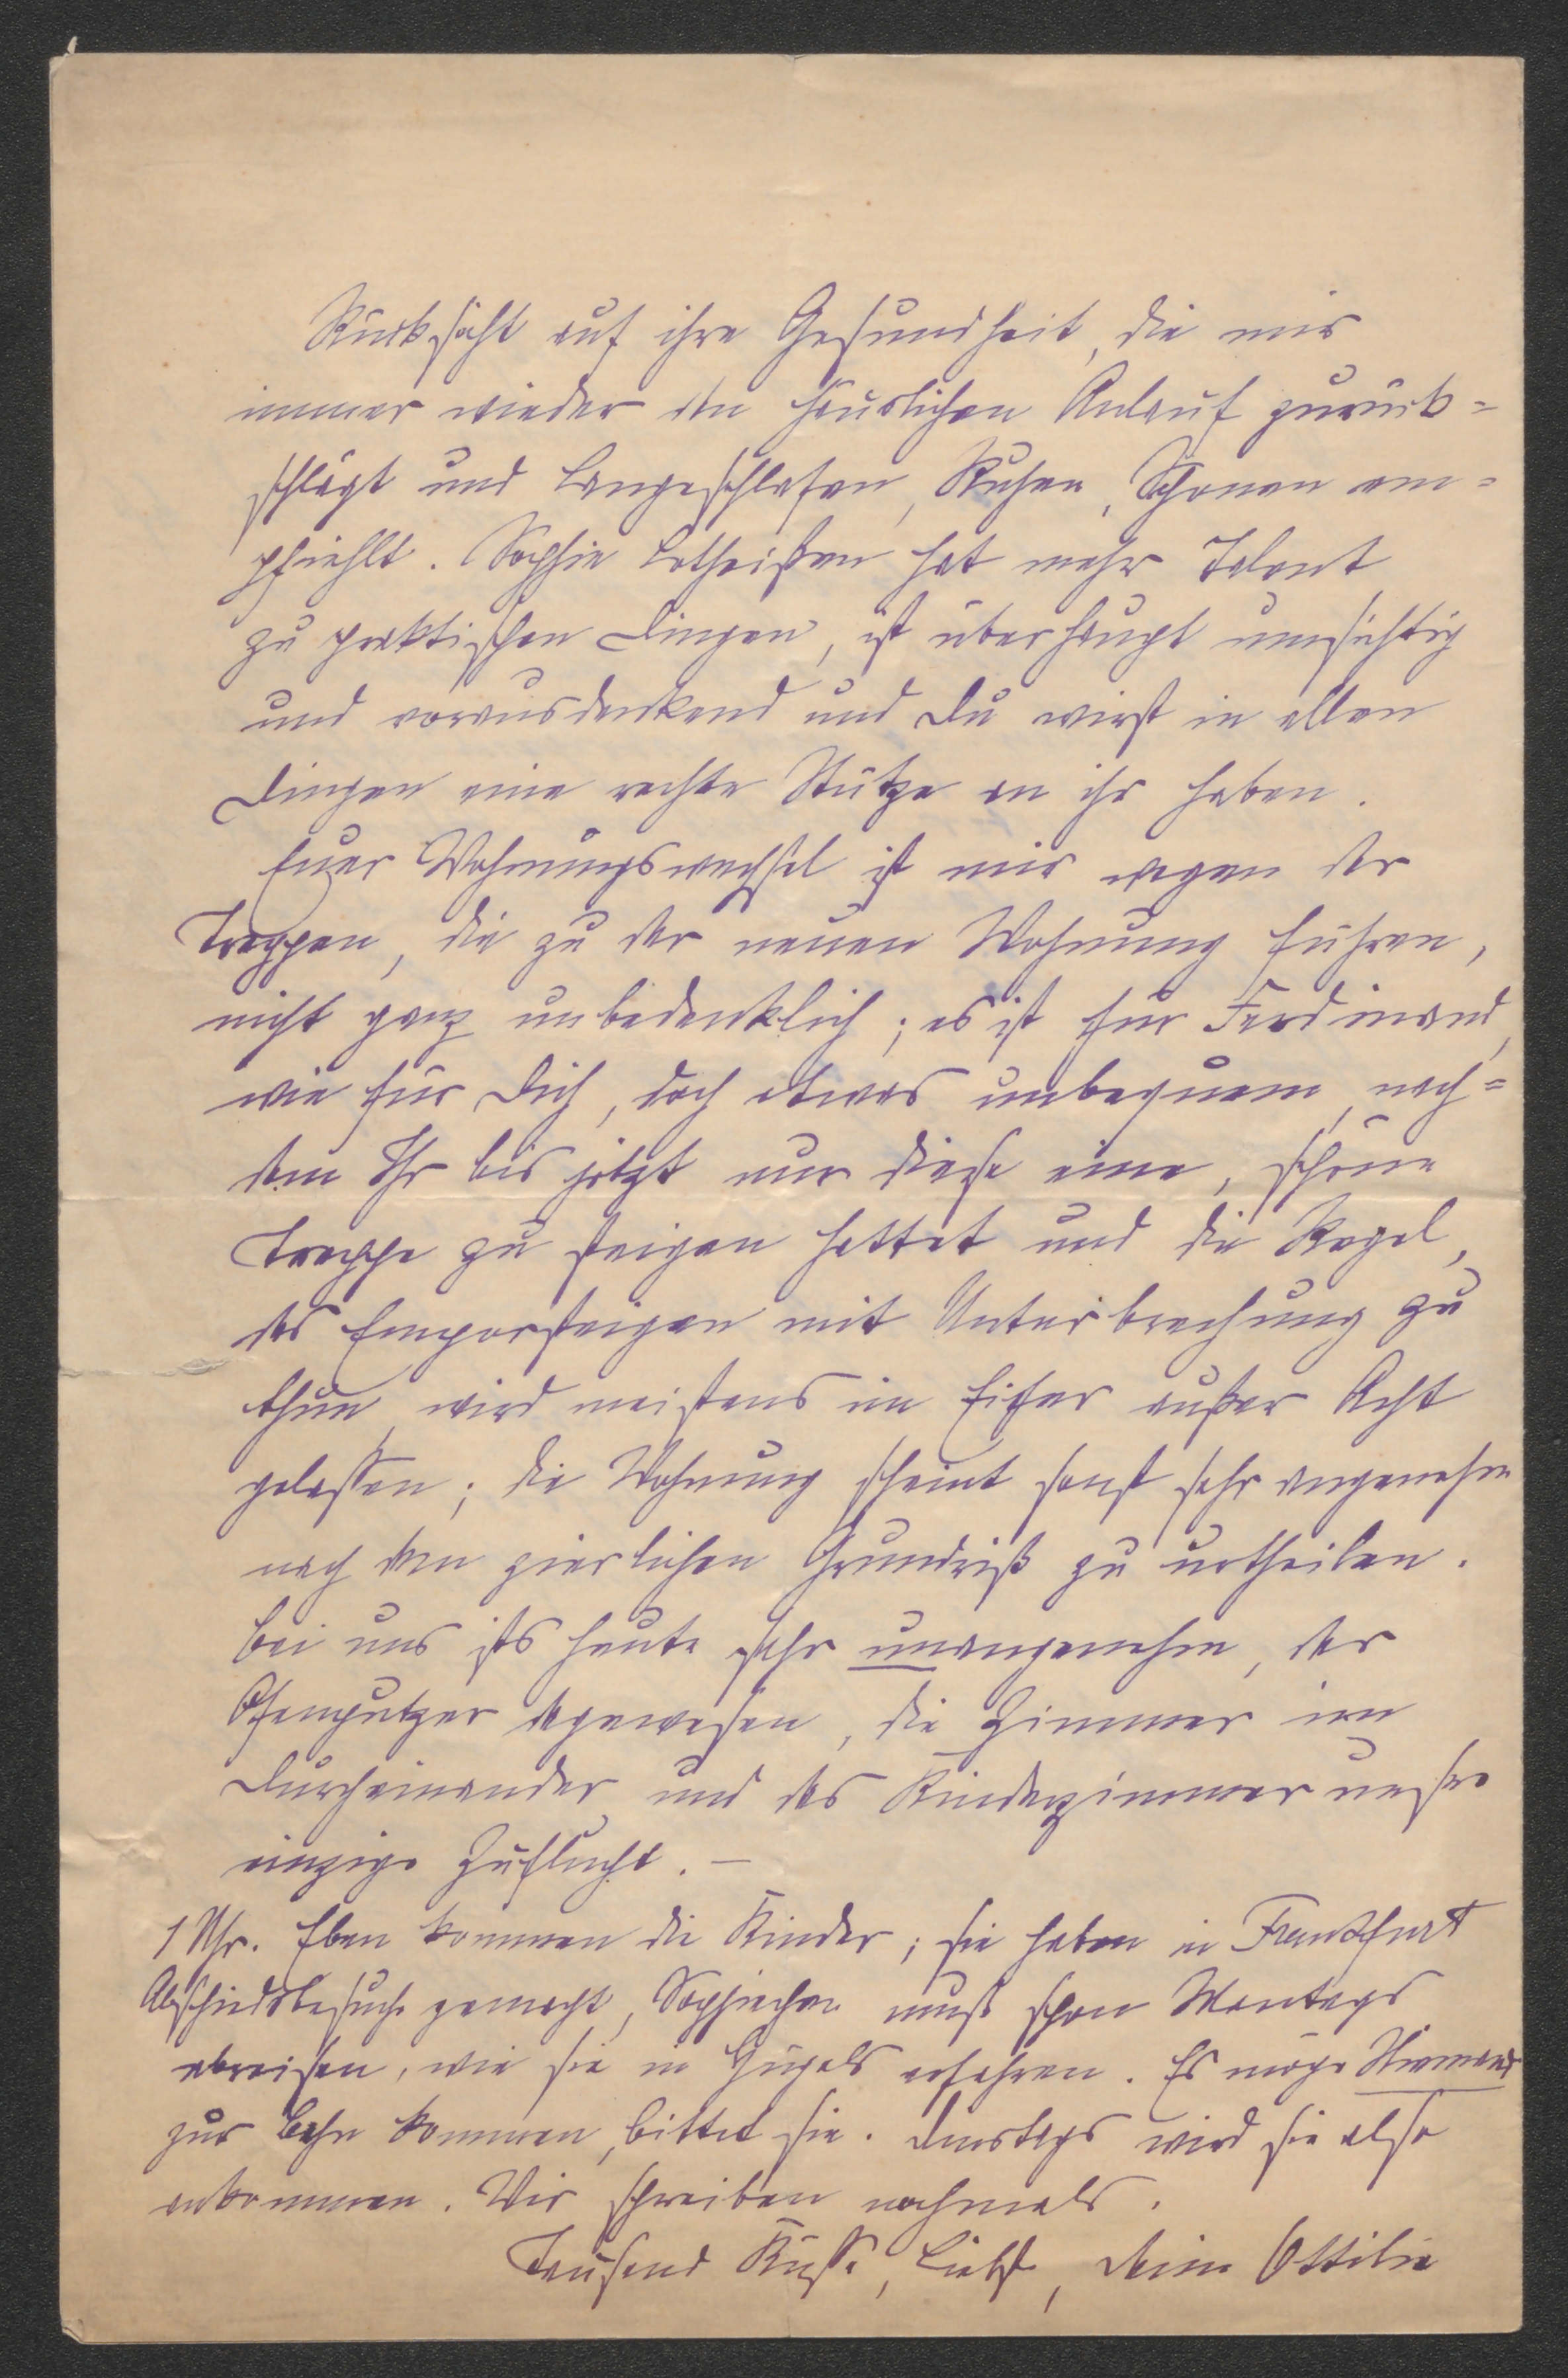 Rücksicht auf ihre Gesundheit, die mir
immer wieder den häuslichen Anlauf zurück=
schlägt und Langeschlafen, Ruhen, Schonen em=
pfiehlt. Sophie Lotheißen hat mehr Talent
zu praktischen Dingen, ist überhaupt umsichtig
und vorausdenkend und Du wirst in allen
Dingen eine rechte Stütze an ihr haben.
Euer Wohnungswechsel ist mir wegen der
Treppen, die zu der neuen Wohnung führen,
nicht ganz unbedenklich; es ist für Ferdinand,
wie für Dich, doch etwas unbequem, nach=
dem Ihr bis jetzt nur diese eine, schöne
Treppe zu steigen hattet und die Regel,
das Emporsteigen mit Unterbrechung zu
thun, wird meistens im Eifer außer Acht
gelassen; die Wohnung scheint sonst sehr angenehm
nach dem zierlichen Grundriß zu urtheilen.
Bei uns ists heute sehr unangenehm, der
Ofenputzer dagewesen, die Zimmer im
Durcheinander und das Kinderzimmer unsre
einzige Zuflucht. –
1 Uhr. Eben kommen die Kinder; sie haben in Frankfurt
Abschiedsbesuche gemacht, Sophiechen muß schon Montags
abreisen, wie sie in erfahren. Es möge Niemand
zur Bahn kommen, bittet sie. Dienstags wird sie also
ankommen. Wir schreiben nochmals.
Tausend Küsse, Liebste, Deine Ottilie